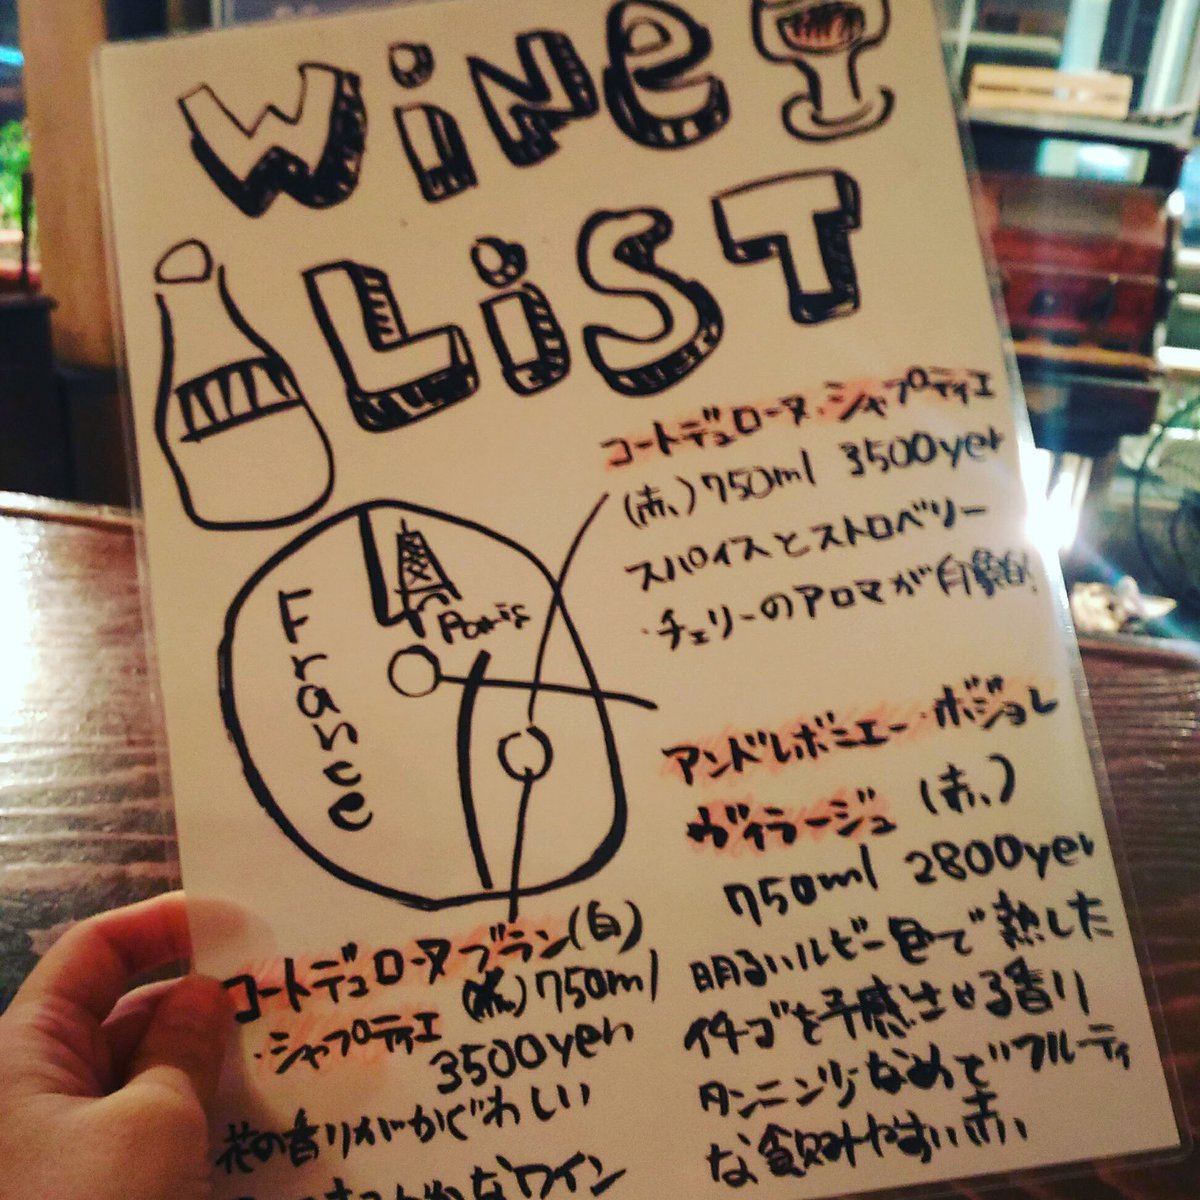 WiNe
LiST
コートデュローヌ・シャプティエ
(赤)750ml 3500yen
スパイスとストロベリー
・チェリーのアロマが印象的!
France
Paris
アンドレボニエー・ボジョレ
ヴィラージュ (赤)
750ml 2800yen
明るいルビー色で熟した
イチゴを予感させる香り
タンニン少なめで フルーティ
な飲みやすい赤
コートデュローヌブラン(白)
・シャプティエ 750ml
3500yen
花の香りがかぐわしい
なワイン